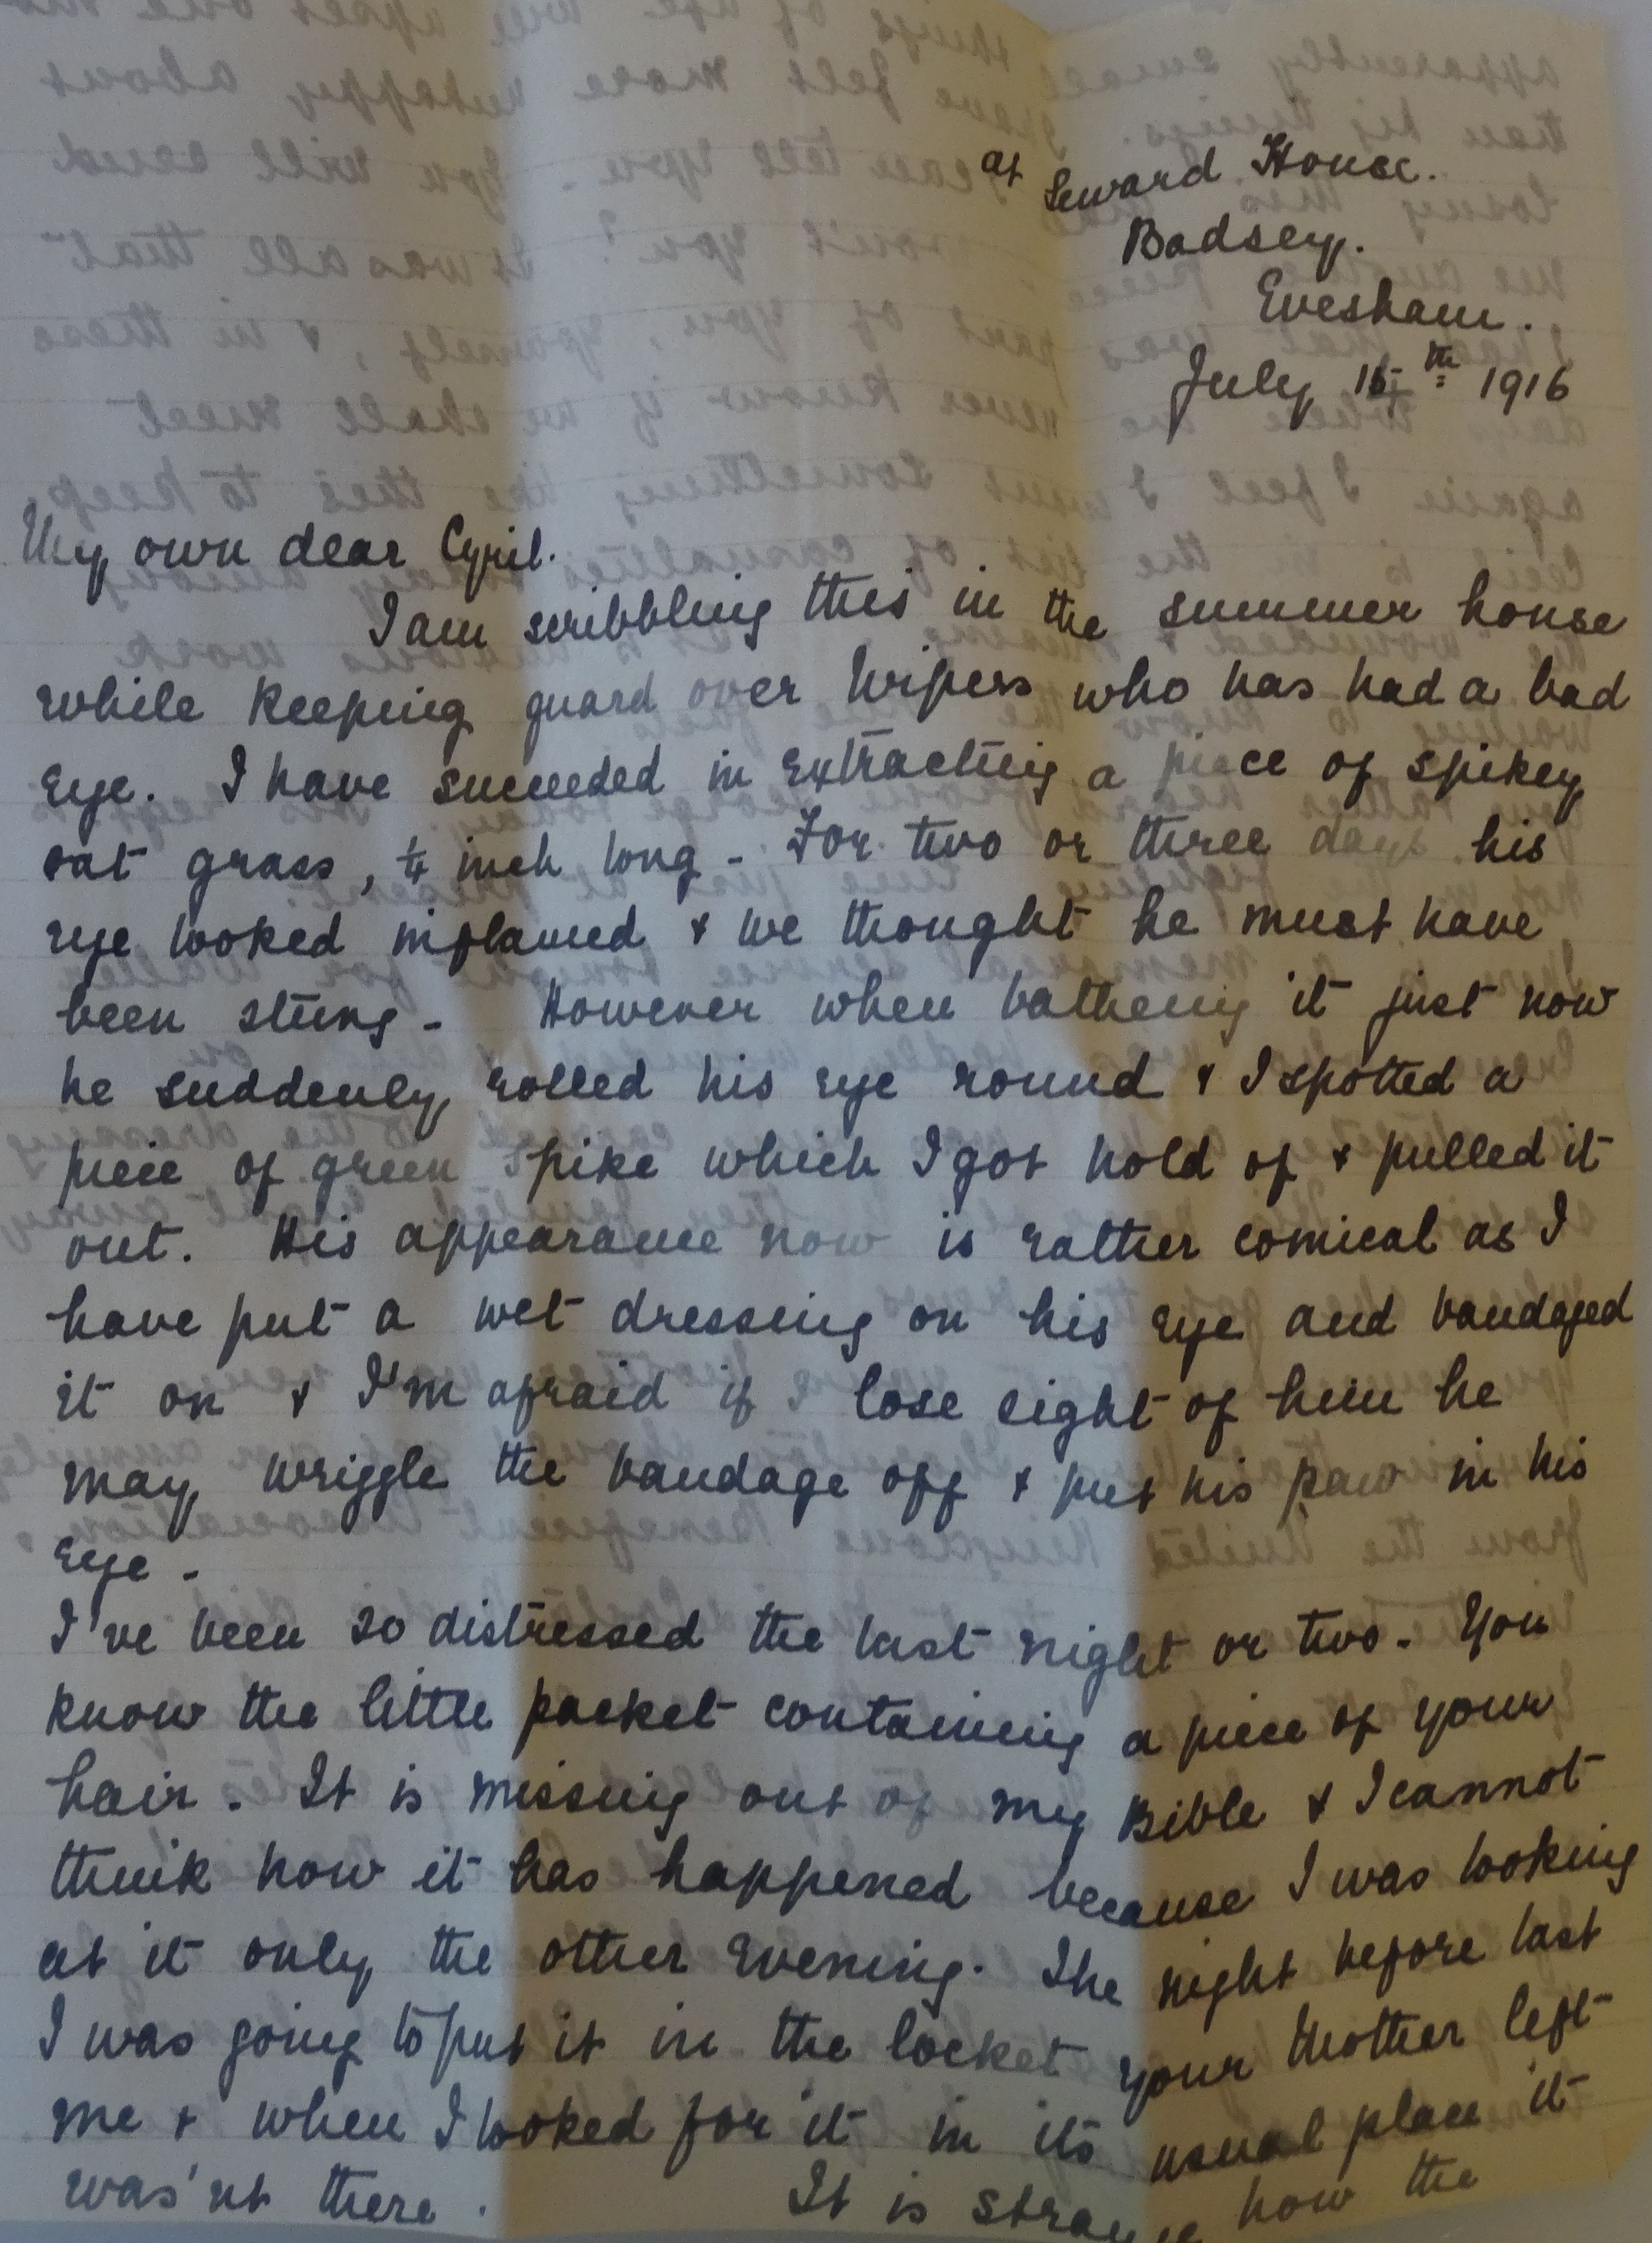 at Seward House.
Badsey.
Evesham.
July 15th 1916
My own dear Cyril.
I am scribbling this in the summer house
while keeping guard over Wipers who has had a bad
eye. I have succeeded in extracting a piece of spikey
oat grass, ¼ inch long - For two or three days his
eye looked inflamed & we thought he must have
been stung - However when bathing it just now
he suddenly rolled his eye round & I spotted a
piece of green spike which I got hold of & pulled it
out. His appearance now is rather comical as I
have put a wet dressing on his eye and bandaged
it on & I'm afraid if I lose sight of him he
may wriggle the bandage off & put his paw in his
eye -
I've been so distressed the last night or two - You
know the little packet containing a piece of your
hair. It is missing out of my Bible & I cannot
think how it has happened because I was looking
at it only the other evening. The night before last
I was going to put it in the locket your Mother left
me & when I looked for it in its usual place it
was'nt there. It is strange how the